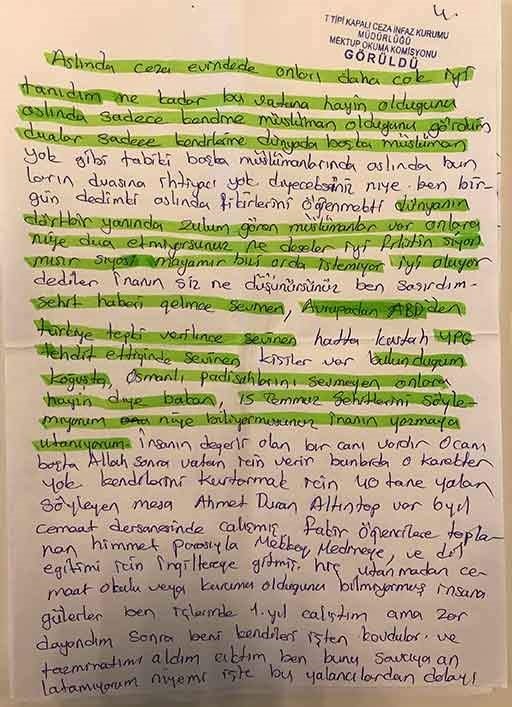 4.
T TİPİ KAPALI CEZA İNFAZ KURUMU
MÜDÜRLÜĞÜ
MEKTUP OKUMA KOMİSYONU
GÖRÜLDÜ
Aslında ceza evindede onları daha çok iyi
tanıdım ne kadar bu vatana hayin olduğunu
aslında sadece kendine müslüman olduğunu gördüm
dualar sadece kendilerine dünyada başka müslüman
yok gibi tabiki başka müslümanlarında aslında bun
ların duasına ihtiyacı yok diyeceksiniz niye ben bir-
gün dedimki aslında fikirlerini öğenmekti dünyanın
dört bir yanında zulum gören müslümanlar var onlara
niye dua etmiyorsunuz ne deseler iyi Filistin siyasi
mısır siyasi mayamır bili orda istemiyor iyi oluyor
dediler inanın siz ne düşünürsünüz ben şaşırdım-
şehit haberi gelince sevinen, Avrupadan ABD'den
türkiye tepki verilince sevinen hatta küstah YPG
tehdit ettiğinde sevinen kişiler var bulunduğum
koğuşta, Osmanlı padişahlarını sevmeyen onlara
hayin diye bakan, 15 Temmuz şehitlerini söyle-
miyorum niye biliyormusunuz inanın yazmaya
utanıyorum. İnsanın değerli olan bir canı vardır O canı
başta Allah sonra vatan için verir bunlarda o karakter
yok kendilerini kurtarmak için 40 tane yalan
söyleyen mesa Ahmet Duran Altıntop var 8 yıl
cemaat dersanesinde çalışmış fakir öğrencilere topla-
nan himmet parasıyla Mekkey Medineye, ve dil
eğitimi için ingiltereye gitmiş hiç utanmadan ce-
maat okulu veya kurumu olduğunu bilmiyormuş insana
gülerler ben içlerinde 1. yıl çalıştım ama zor
dayandım sonra beni kendileri işten kovdular. ve
tazminatımı aldım çıktım ben bunu savcıya an
latamıyorum niyemi işte bu yalancılardan dolayı